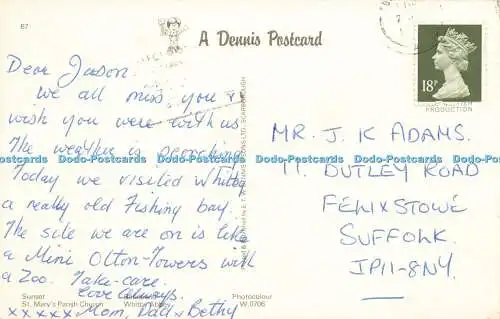 67
A Dennis Postcard
Dear Jason.
We all miss you &
wish you were with us
The weather is scorching
Today we visited Whitby
a really old Fishing bay.
The site we are on is like
a Mini Olton-Towers with
a Zoo. Take-care.
Love always.
xxxxx Mom, Dad & Bethy
Sunset
St. Mary's Parish Church
Whitby Abbey
Photocolour
W.0706
18P
PRODUCTION
MR. J. K ADAMS.
11. DUTLEY ROAD
FELIXSTOWE
SUFFOLK.
IP11-8NY.
Dodo-Postcards Dodo-Postcards Dodo-Postcards Dodo-Postcards Dodo-Postcards